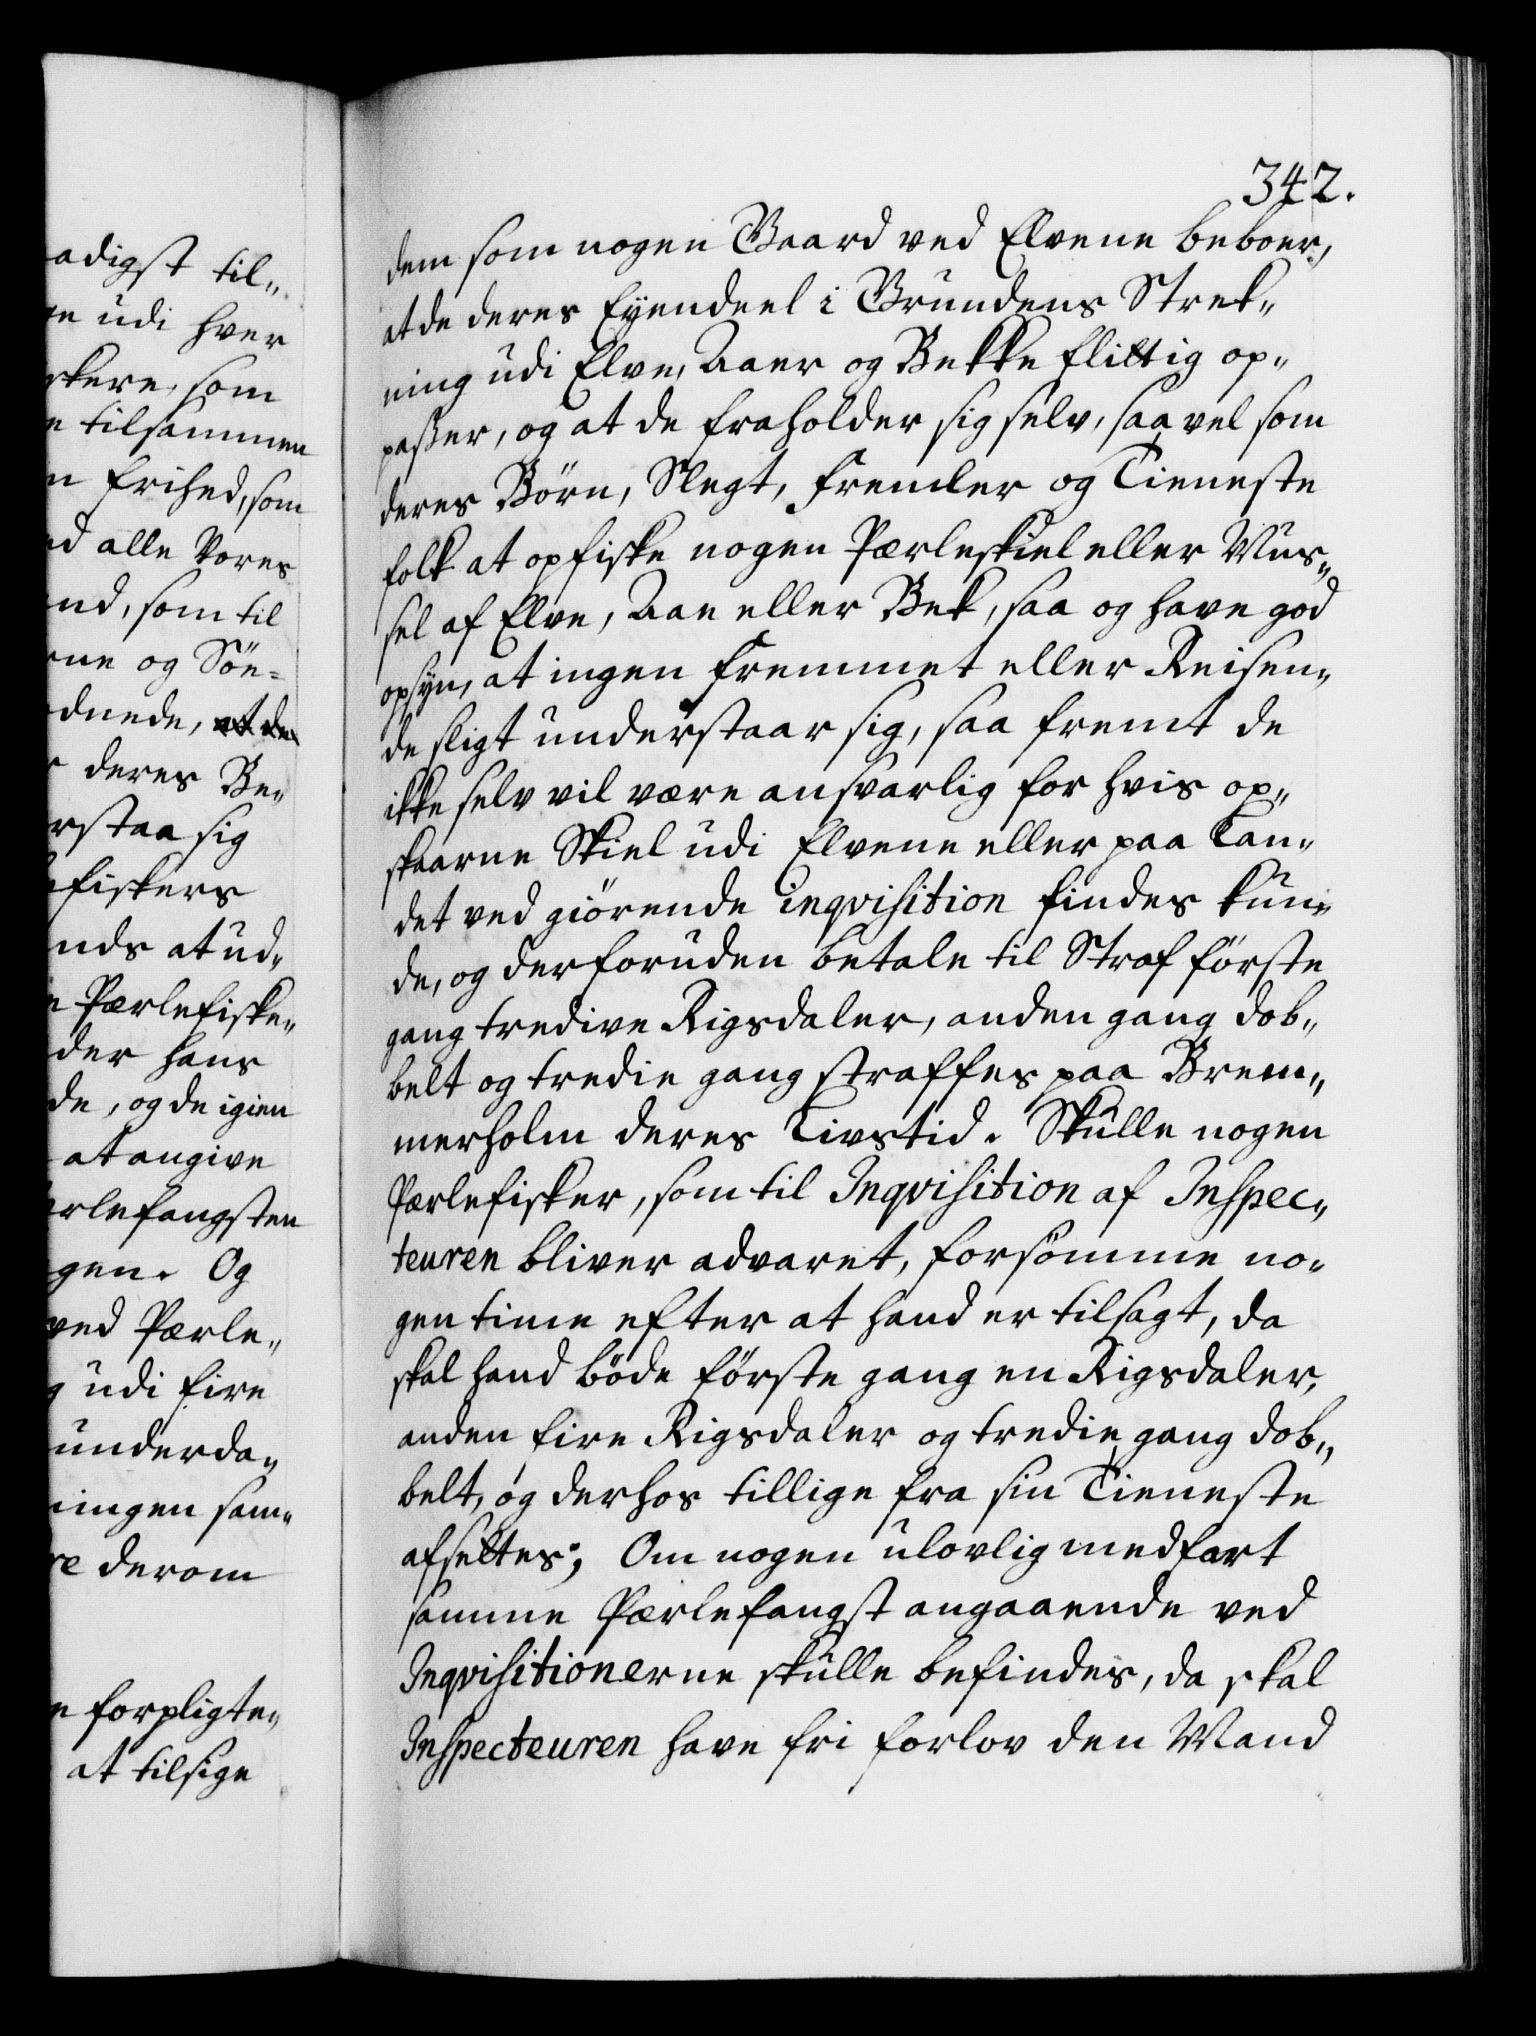 adigst til„
ge udi hver
skere, som
e tilsammen
n frihed, som
ed alle Vores
end, som til
rne og Søn=
dnede, at de
r deres Be„
rstaa sig
efiskers
nds at ud„
e Pærlefiske„
der hans
de, og de igien
at angive
erlefangsten
gen. Og
ved Pærle„
g udi fire
underda„
ningen sam„
re derom
e forpligte„
at tilsige
342.
dem som nogen Gaard ved Elvene beboer,
at de deres Eyendeel i Grundens Strek„
ning udi Elve, Aaer og Bekke flittig op„
passer, og at de fraholder sig selv, saa vel som
deres Börn, Slegt, fremder og Tieneste
folk at opfiske nogen Pærleskiel eller Mus„
sel af Elve, Aae eller Bek, saa og have god
opsyn, at ingen fremmet eller Reisen„
de sligt understaar sig, saa fremt de
ikke selv vil være ansvarlig for hvis op„
skaarne Skiel udi Elvene eller paa Lan„
det ved giörende inqvisition findes kun„
de, og derforuden betale til Straf förste
gang tredive Rigsdaler, anden gang dob„
belt og tredie gang straffes paa Brem„
merholm deres Livstid. Skulle nogen
Pærlefisker, som til Inqvisition af Inspec„
teuren bliver advaret, forsömme no„
gen time efter at hand er tilsagt, da
skal hand böde förste gang en Rigsdaler,
anden fire Rigsdaler og tredie gang dob„
belt, og derhos tillige fra sin Tieneste
afsettes; Om nogen ulovlig medfart
samme Pærlefangst angaaende ved
Inqvisitionerne skulle befindes, da skal
Inspecteuren have fri forlov den Mand